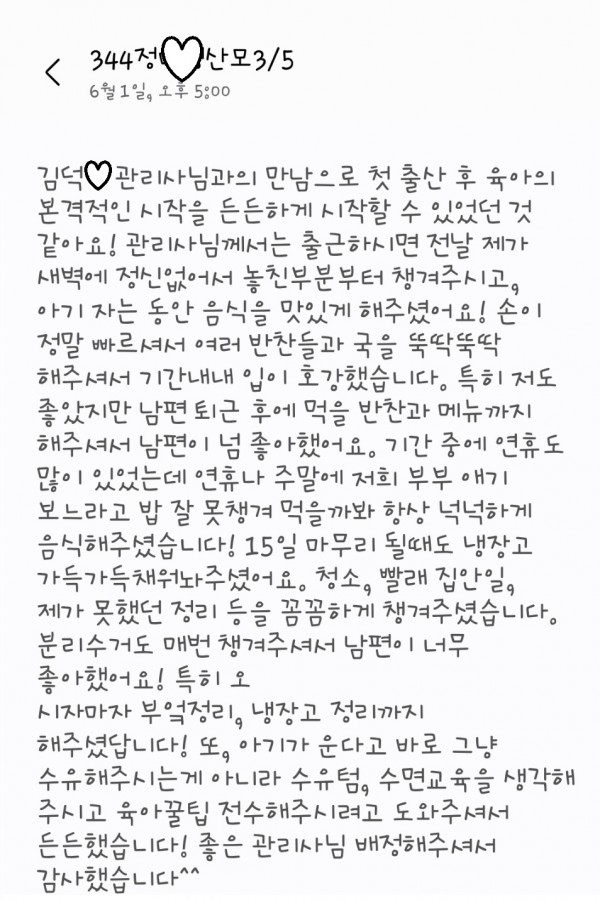 344정♡산모3/5
6월 1일, 오후 5:00
김덕♡관리사님과의 만남으로 첫 출산 후 육아의
본격적인 시작을 든든하게 시작할 수 있었던 것
같아요! 관리사님께서는 출근하시면 전날 제가
새벽에 정신없어서 놓친부분부터 챙겨주시고,
아기 자는 동안 음식을 맛있게 해주셨어요! 손이
정말 빠르셔서 여러 반찬들과 국을 뚝딱뚝딱
해주셔서 기간내내 입이 호강했습니다. 특히 저도
좋았지만 남편 퇴근 후에 먹을 반찬과 메뉴까지
해주셔서 남편이 넘 좋아했어요. 기간 중에 연휴도
많이 있었는데 연휴나 주말에 저희 부부 애기
보느라고 밥 잘 못챙겨 먹을까봐 항상 넉넉하게
음식해주셨습니다! 15일 마무리 될때도 냉장고
가득가득채워놔주셨어요. 청소, 빨래 집안일,
제가 못했던 정리 등을 꼼꼼하게 챙겨주셨습니다.
분리수거도 매번 챙겨주셔서 남편이 너무
좋아했어요! 특히 오
시자마자 부엌정리, 냉장고 정리까지
해주셨답니다! 또, 아기가 운다고 바로 그냥
수유해주시는게 아니라 수유텀, 수면교육을 생각해
주시고 육아꿀팁 전수해주시려고 도와주셔서
든든했습니다! 좋은 관리사님 배정해주셔서
감사했습니다^^